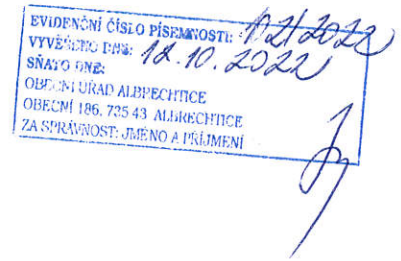 EVIDENČNÍ ČÍSLO PÍSEMNOSTI:
VYVĚŠENO DNE: 12.10.2022
SŇATO DNE:
OBECNÍ ÚŘAD ALBRECHTICE
OBECNÍ 186, 735 43 ALBRECHTICE
ZA SPRÁVNOST: JMÉNO A PŘÍJMENÍ